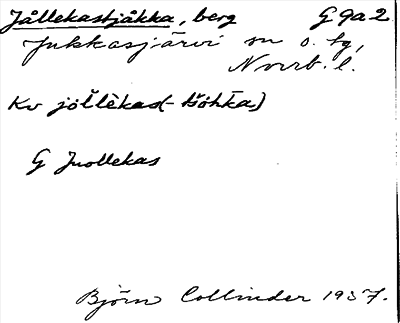 Jållekastjåkka, berg G 9a 2
Jukkasjärvi sn o. tg,
Norrb. l.
Kv jöllèkas(-tšohka)
G Juollekas
Björn Collinder 1937.